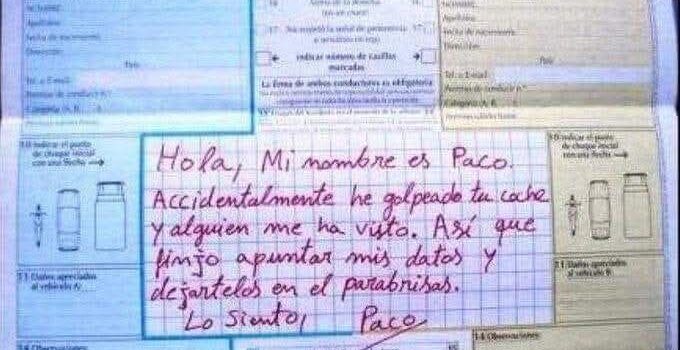 Nombre
Apellidos
Fecha de nacimiento
Dirección
País
Tel. o E-mail
Permiso de conducir n.º
Categoría (A, B,
16
16
(en un cruce)
17
No respetó la señal de
17
o semáforo en rojo
indicar número de casillas
marcadas
La firma de ambos conductores es obligatoria
Nombre
Apellidos
Fecha de nacimiento
Dirección
País
Tel. o E-mail
Permiso de conducir n.º
Categoría (A, B,
10 Indicar el punto
de choque inicial
con una flecha
Hola, Mi nombre es Paco.
Accidentalmente he golpeado tu coche
y alguien me ha visto. Así que
finjo apuntar mis datos y
dejartelos en el parabrisas.
Lo siento, Paco
11 Daños apreciados
al vehículo A:
10 Indicar el punto
de choque inicial
con una flecha
11 Daños apreciados
al vehículo B:
14 Observaciones
14 Observaciones